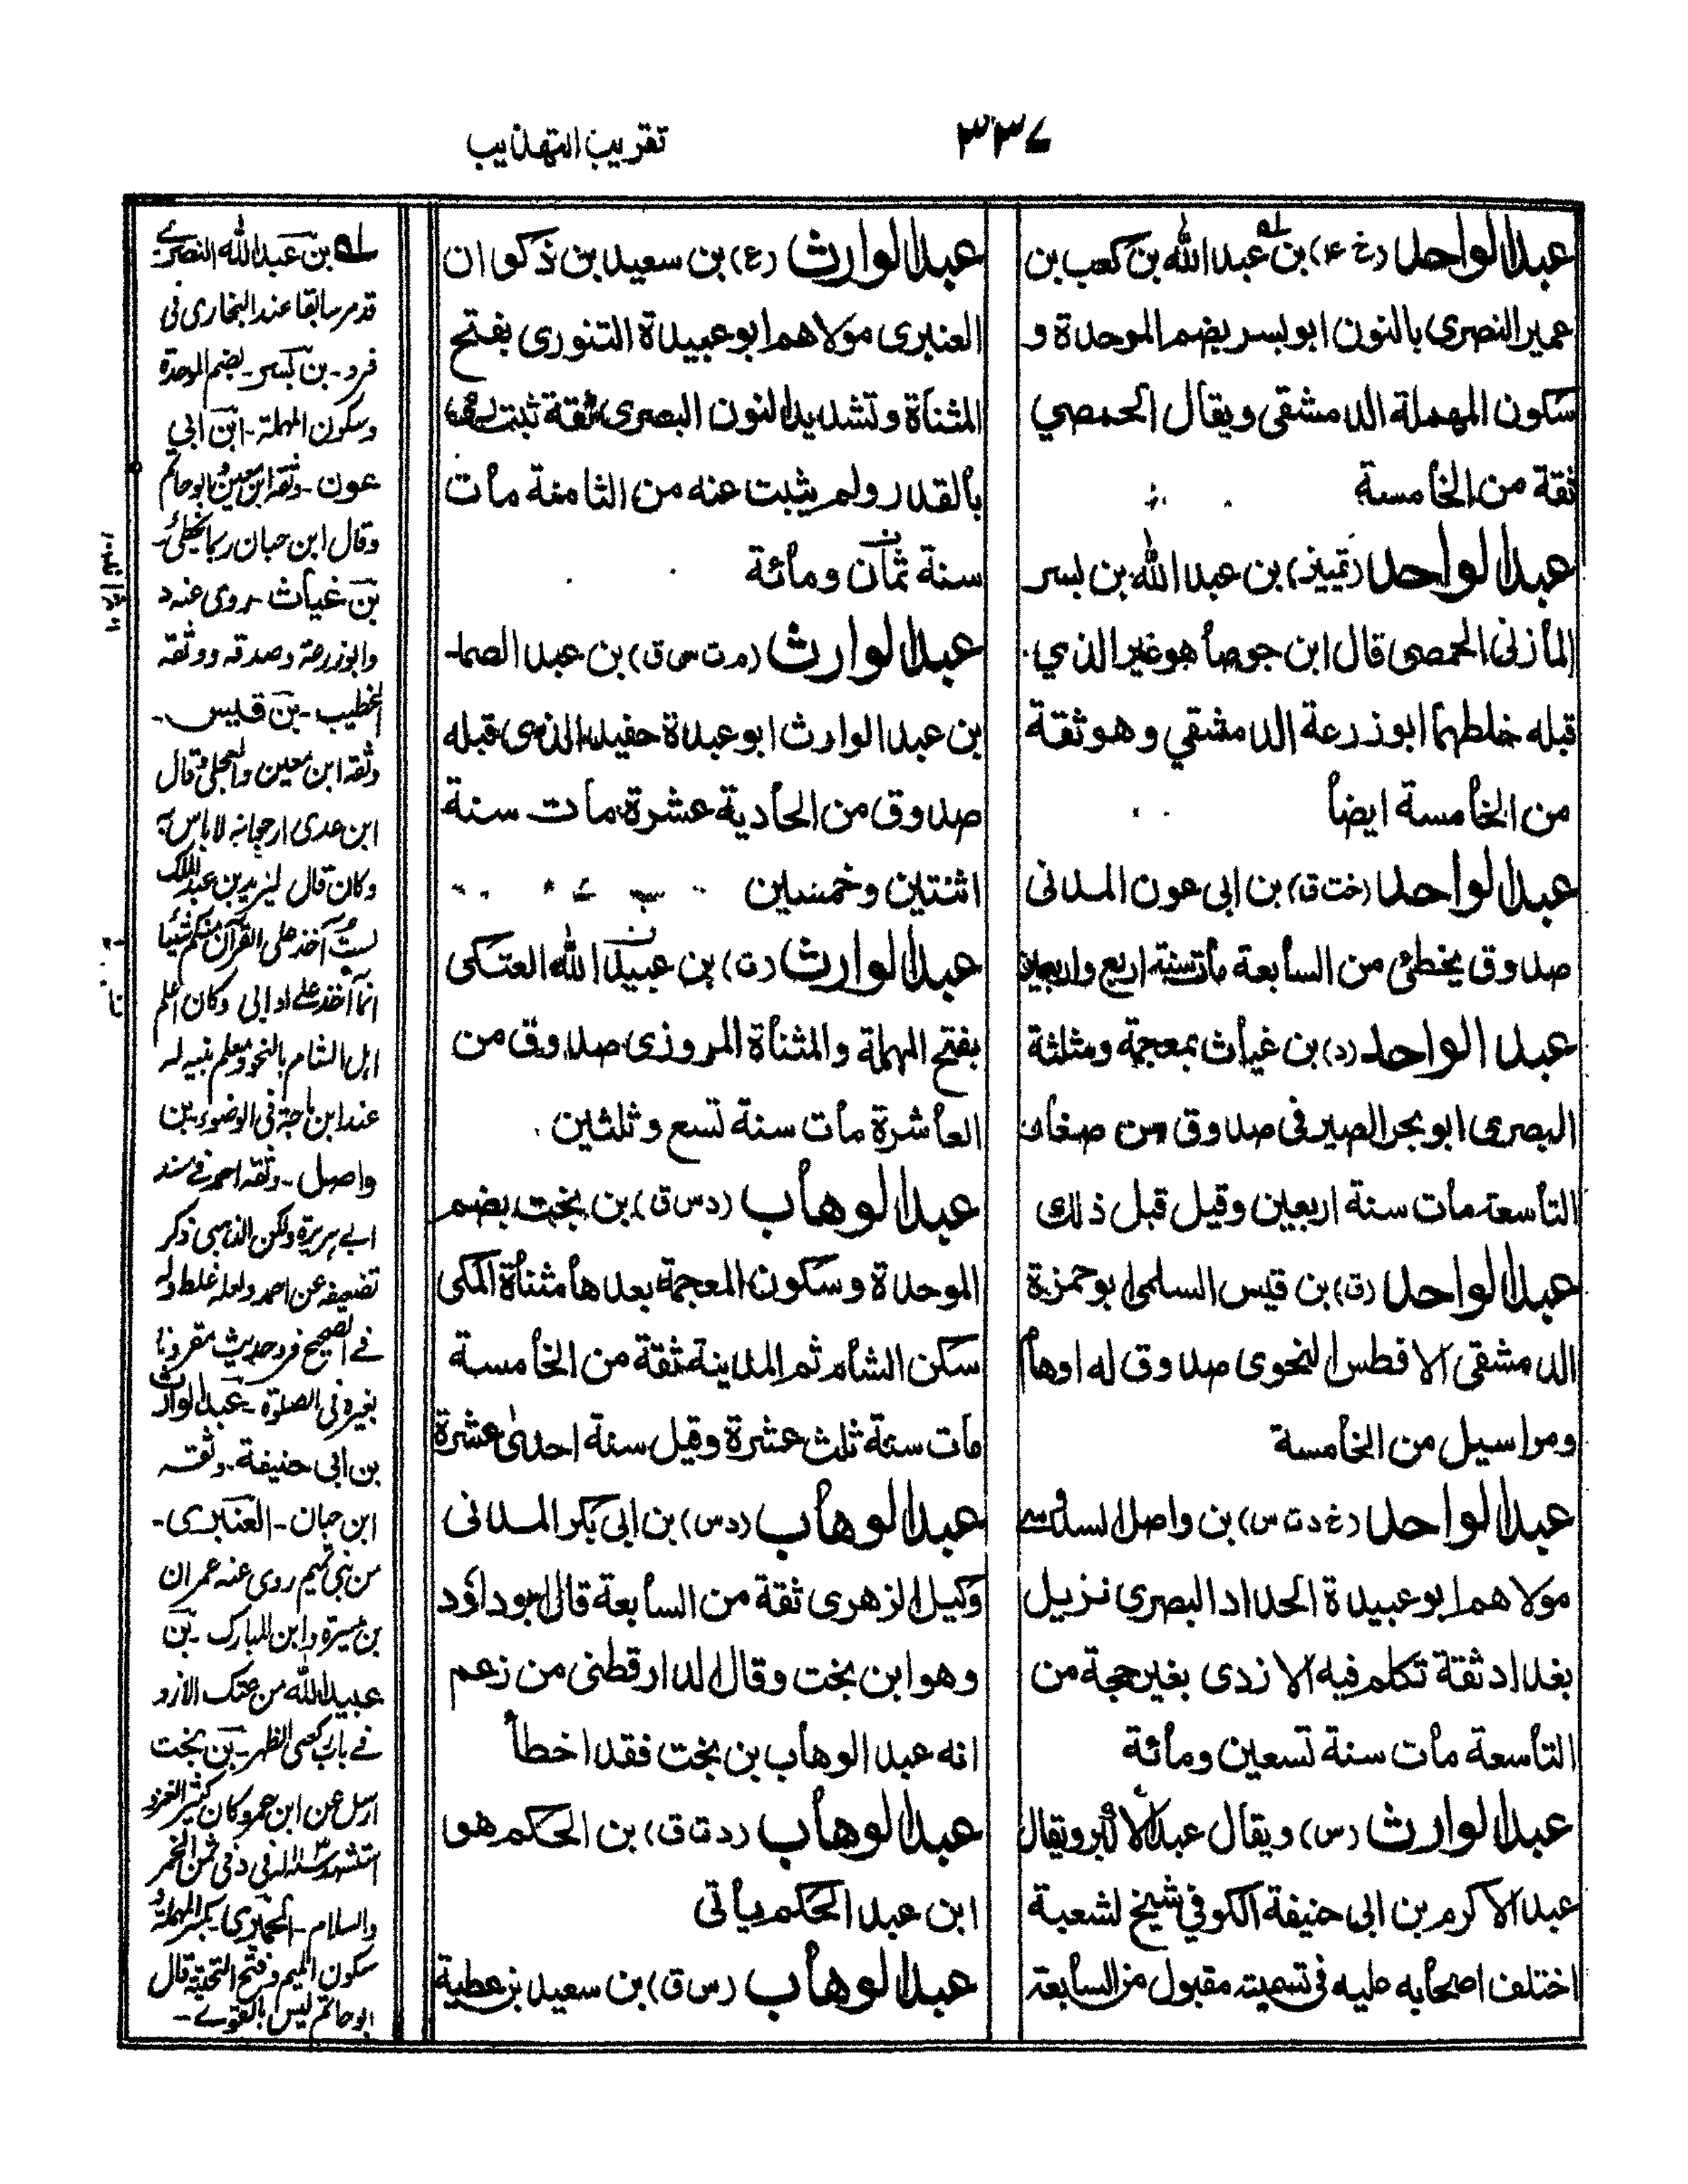 ٣٣٧
تقريب التهذيب
عبدالواحد (خ ٤) بن عبدالله بن كعب بن
عمير النصرى بالنون ابو بسر بضم الموحدة و
سكون المهملة الدمشقى ويقال الحمصي
ثقة من الخامسة
عبدالواحد (تمييز) بن عبدالله بن بسر
المازنى الحمصى قال ابن جوصا هو غير الذي
قبله خلطهما ابو زرعة الدمشقي وهو ثقة
من الخامسة ايضا
عبدالواحد (خت ق) بن ابى عون المدنى
صدوق يخطئ من السابعة مات سنة اربع واربعين
عبد الواحد (د) بن غياث بمعجمة ومثلثة
البصرى ابو بحر الصيرفى صدوق من صغار
التاسعة مات سنة اربعين وقيل قبل ذلك
عبدالواحد (ق) بن قيس السلمى ابو حمزة
الدمشقى الافطس النحوى صدوق له اوهام
ومراسيل من الخامسة
عبدالواحد (خ د ت س) بن واصل السدوسے
مولاهم ابو عبيدة الحداد البصرى نزيل
بغداد ثقة تكلم فيه الازدى بغير حجة من
التاسعة مات سنة تسعين ومائة
عبدالوارث (س) ويقال عبدالاكبر ويقال
عبد الاكرم بن ابى حنيفة الكوفي شيخ لشعبة
اختلف اصحابه عليه فى تسميته مقبول من السابعة
عبدالوارث (ع) بن سعيد بن ذكوان
العنبرى مولاهم ابو عبيدة التنورى بفتح
المثناة وتشديد النون البصرى ثقة ثبت رمى
بالقدر ولم يثبت عنه من الثامنة مات
سنة ثمان ومائة
عبدالوارث (م ت س ق) بن عبد الصمد
بن عبد الوارث ابو عبيدة حفيد الذى قبله
صدوق من الحادية عشرة مات سنة
اثنتين وخمسين
عبدالوارث (ت) بن عبيدالله العتكى
بفتح المهملة والمثناة المروزى صدوق من
العاشرة مات سنة تسع وثلثين
عبدالوهاب (د س ق) بن بخت بضم
الموحدة وسكون المعجمة بعدها مثناة المكى
سكن الشام ثم المدينة ثقة من الخامسة
مات سنة ثلث عشرة وقيل سنة احدى عشرة
عبدالوهاب (د س) بن ابى بكر المدنى
وكيل الزهرى ثقة من السابعة قال ابو داؤد
وهو ابن بخت وقال الدارقطنى من زعم
انه عبد الوهاب بن بخت فقد اخطأ
عبدالوهاب (د ت ق) بن الحكم هو
ابن عبد الحكم يأتى
عبدالوهاب (س ق) بن سعيد بن عطية
له بن عبدالله النصرے
قد مر سابقا عند البخارى فى
فرد - بن بسر - بضم الموحدة
وسكون المهملة - ابن ابي
عون - وثقه ابن معين وابو حاتم
وقال ابن حبان ربما يخطئ -
بن غياث - روى عنه د
وابو زرعة وصدقه ووثقه
الخطيب - بن قيس -
وثقه ابن معين والعجلى وقال
ابن عدى ارجو انه لا باس به
وكان قال ليزيد بن عبد الملك
لست آخذ على القرآن منكم شيئا
انما آخذ على ادابى وكان اعلم
اهل الشام بالنحو ومعلم بنيه له
عند ابن ماجة فى الوضوء - بن
واصل - وثقه احمد فے مسند
ابى هريرة ولكن الذهبى ذكر
تضعيفه عن احمد ولعله غلط وله
فے الصحيح فرد حديث مقرونا
بغيره فى الصلوة - عبدالوارث
بن ابى حنيفة - وثقه
ابن حبان - العنبرى -
من بنى تميم روى عنه عمران
بن ميسرة وابن المبارك - بن
عبيدالله من عتك الازد
بن بخت
ارسل عن ابن عمر وكان كثير الغزو
والسلام -
سكون الميم وفتح التحتية قال
ابو حاتم ليس بالقوے -